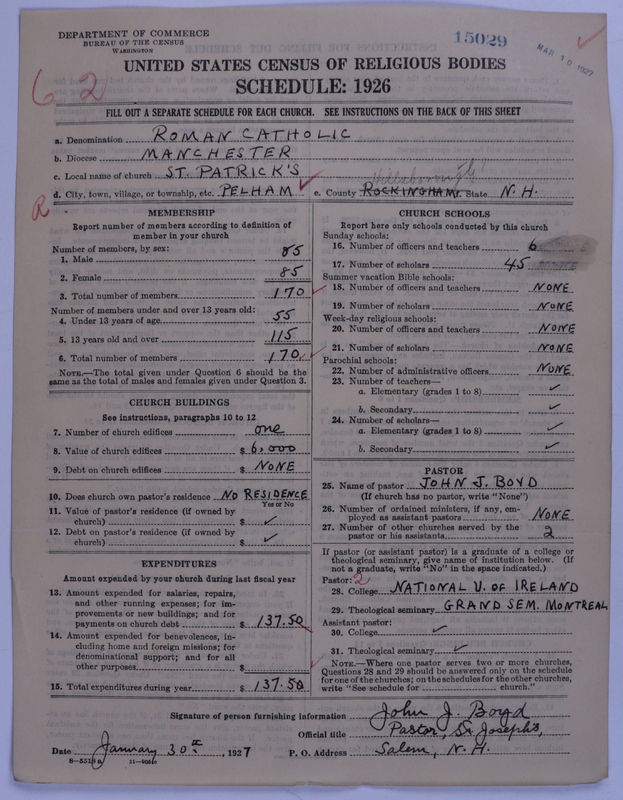 DEPARTMENT OF COMMERCE
BUREAU OF THE CENSUS
WASHINGTON
15029
MAR 10 1927
UNITED STATES CENSUS OF RELIGIOUS BODIES
SCHEDULE: 1926
62
FILL OUT A SEPARATE SCHEDULE FOR EACH CHURCH. SEE INSTRUCTIONS ON THE BACK OF THIS SHEET
a. Denomination ROMAN CATHOLIC
b. Diocese MANCHESTER
c. Local name of church ST. PATRICK'S
Hillsborough
d. City, town, village, or township, etc. PELHAM e. County ROCKINGHAM State N.H.
R
MEMBERSHIP
Report number of members according to definition of
member in your church
Number of members, by sex:
1. Male 85
2. Female 85
3. Total number of members 170
Number of members under and over 13 years old:
4. Under 13 years of age 55
5. 13 years old and over 115
6. Total number of members 170
NOTE.—The total given under Question 6 should be the
same as the total of males and females given under Question 3.
CHURCH BUILDINGS
See instructions, paragraphs 10 to 12
7. Number of church edifices one
8. Value of church edifices $ 6,000
9. Debt on church edifices $ NONE
10. Does church own pastor's residence NO RESIDENCE
Yes or No
11. Value of pastor's residence (if owned by
church) $ ✓
12. Debt on pastor's residence (if owned by
church) $ ✓
EXPENDITURES
Amount expended by your church during last fiscal year
13. Amount expended for salaries, repairs,
and other running expenses; for im-
provements or new buildings; and for
payments on church debt $ 137.50
14. Amount expended for benevolences, in-
cluding home and foreign missions; for
denominational support; and for all
other purposes $
15. Total expenditures during year $ 137.50
CHURCH SCHOOLS
Report here only schools conducted by this church
Sunday schools:
16. Number of officers and teachers 6
17. Number of scholars 45
Summer vacation Bible schools:
18. Number of officers and teachers NONE
19. Number of scholars NONE
Week-day religious schools:
20. Number of officers and teachers NONE
21. Number of scholars NONE
Parochial schools:
22. Number of administrative officers NONE
23. Number of teachers—
a. Elementary (grades 1 to 8) ✓
b. Secondary ✓
24. Number of scholars—
a. Elementary (grades 1 to 8) ✓
b. Secondary ✓
PASTOR
25. Name of pastor JOHN J. BOYD
(If church has no pastor, write "None")
26. Number of ordained ministers, if any, em-
ployed as assistant pastors NONE
27. Number of other churches served by the
pastor or his assistants 2
If pastor (or assistant pastor) is a graduate of a college or
theological seminary, give name of institution below. (If
not a graduate, write "No" in the space indicated.)
Pastor: 2
28. College NATIONAL U. OF IRELAND
29. Theological seminary GRAND SEM. MONTREAL
Assistant pastor:
30. College ✓
31. Theological seminary ✓
NOTE.—Where one pastor serves two or more churches,
Questions 28 and 29 should be answered only on the schedule
for one of the churches; on the schedules for the other churches,
write "See schedule for church."
Signature of person furnishing information John J. Boyd
Official title Pastor, St. Joseph's,
Date January 30th, 1927 P. O. Address Salem, N.H.